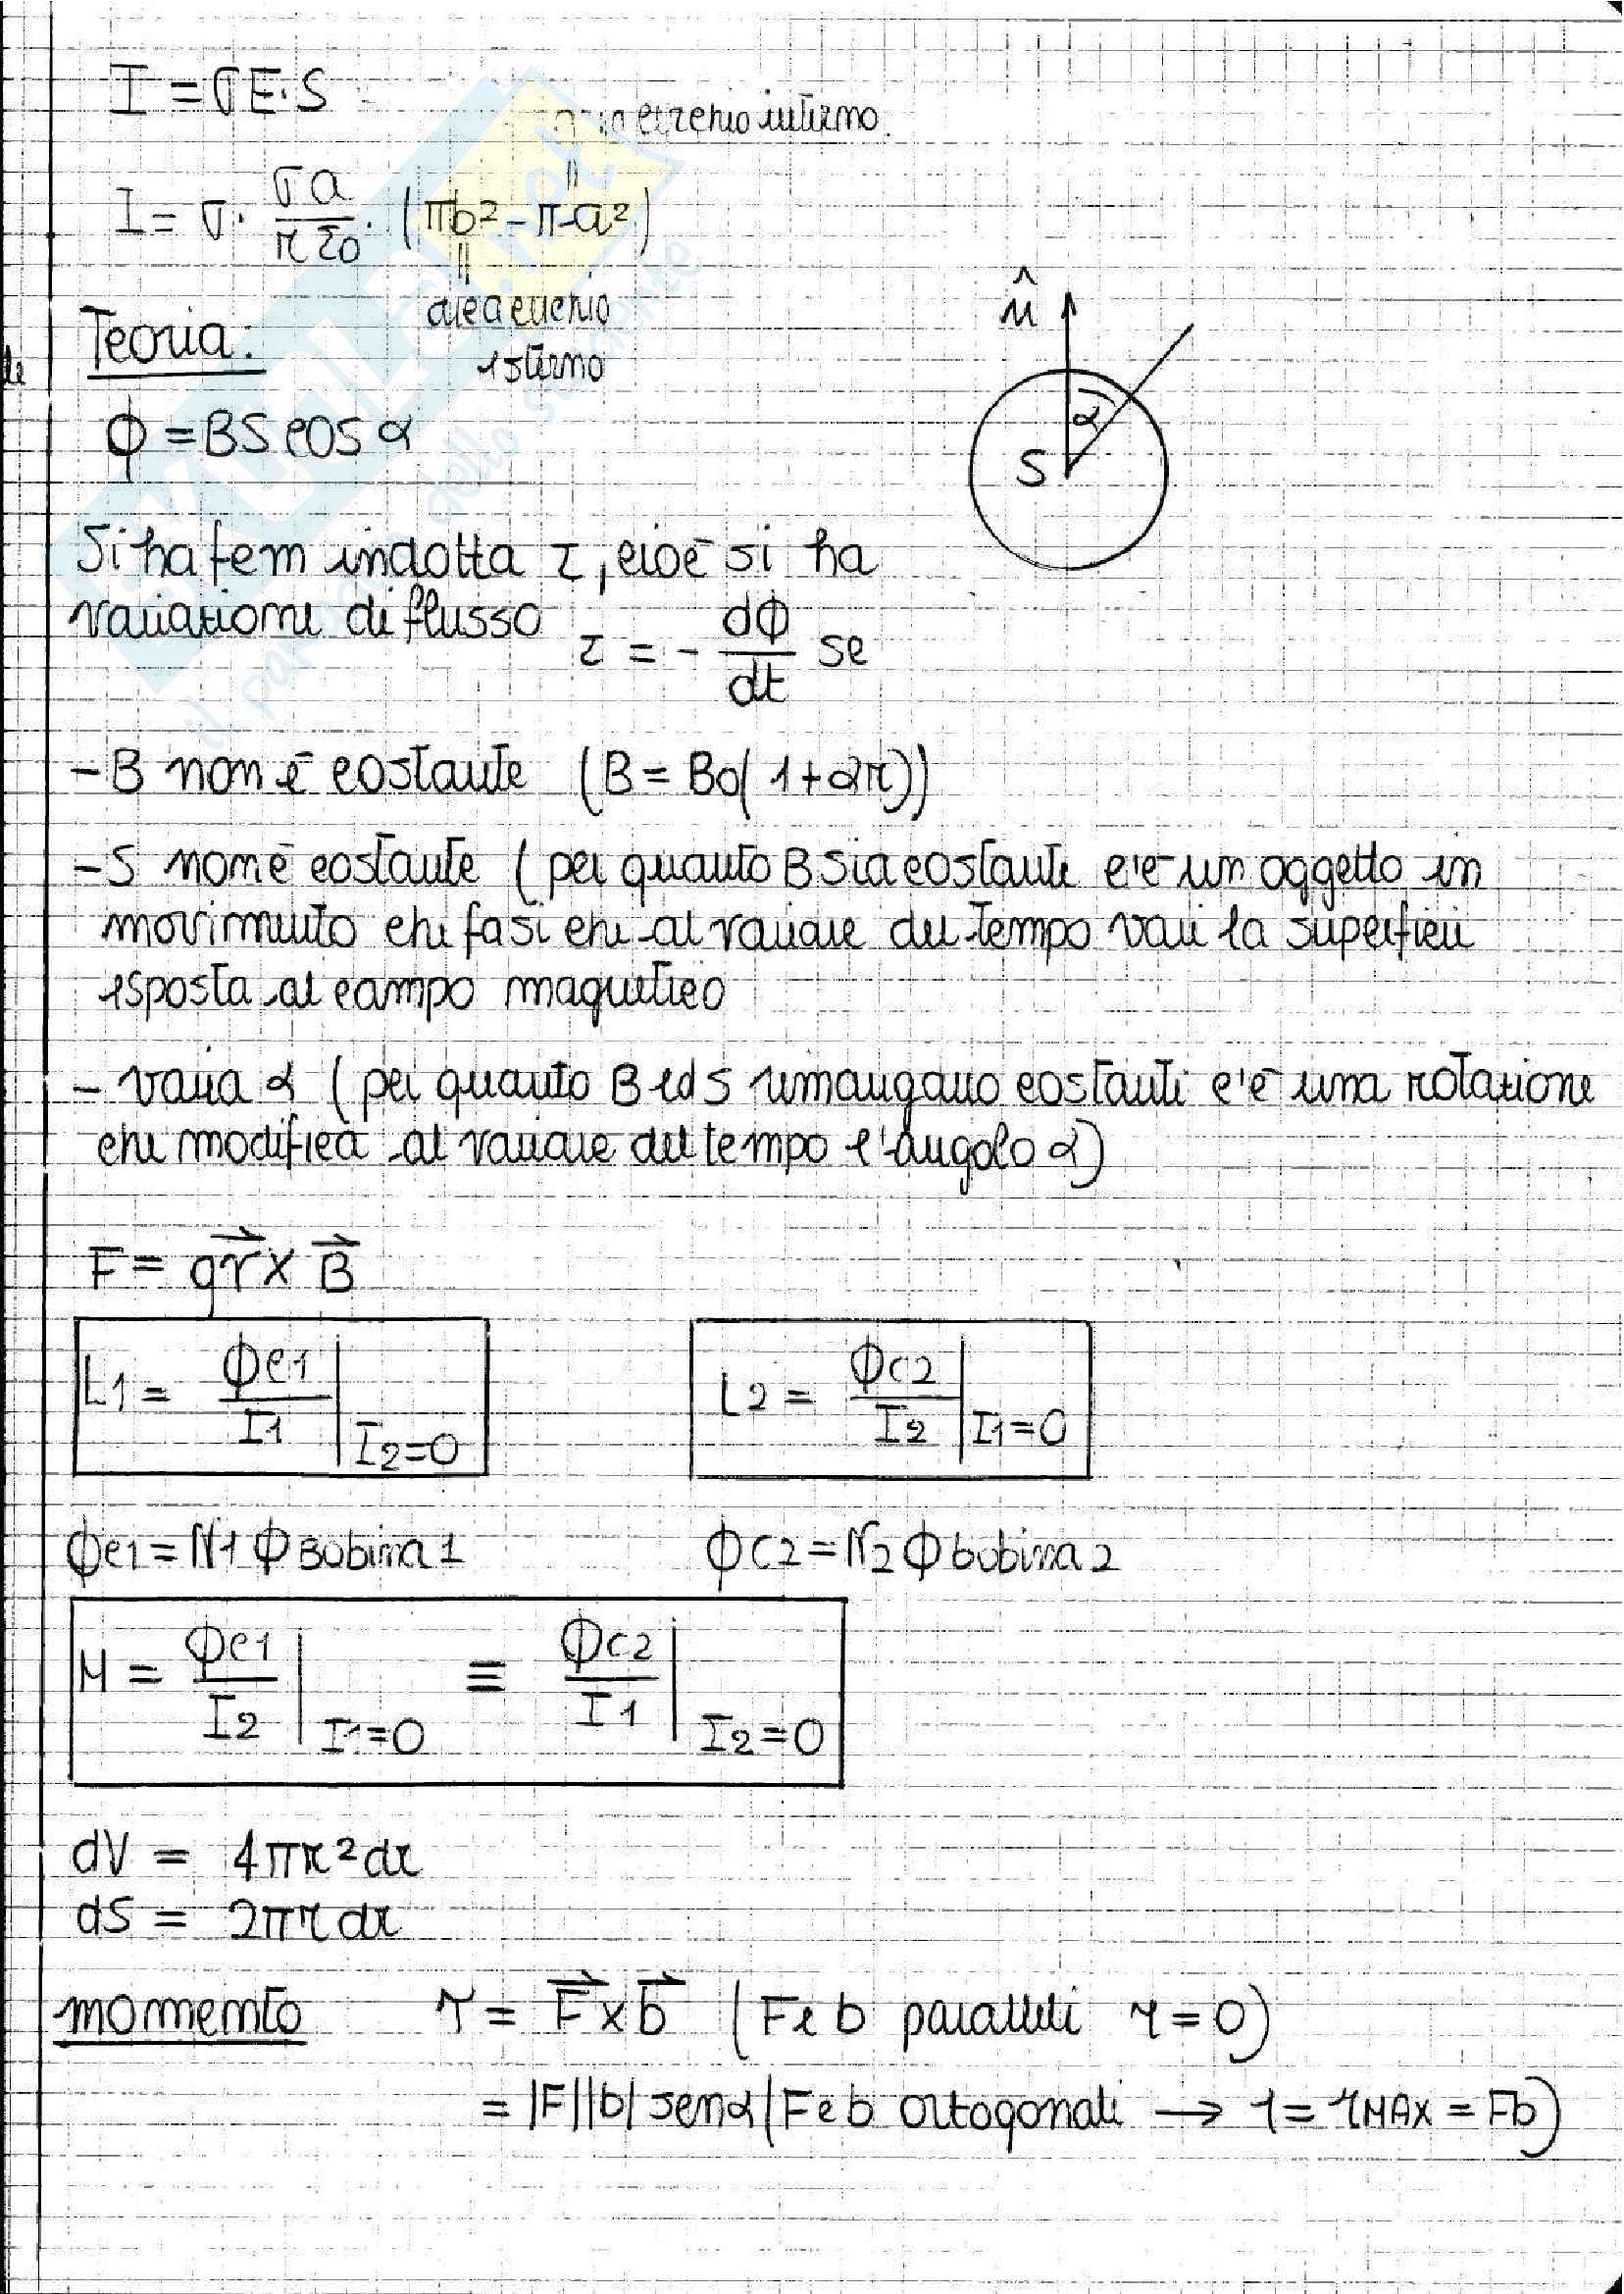 I = σE·S
cerchio interno
=
I = σ· σa/rε0 · (πb² - πa²)
=
area cerchio
esterno
Teoria:
n̂
α
S
ϕ = BS cos α
Si ha fem indotta ε, cioè si ha
variazione di flusso ε = - dϕ/dt se
- B non è costante (B = B0(1+αr))
- S non è costante (per quanto B sia costante c'è un oggetto in
movimento che fa si che al variare del tempo vari la superficie
esposta al campo magnetico
- varia α (per quanto B ed S rimangano costanti c'è una rotazione
che modifica al variare del tempo l'angolo α)
F = qv⃗ × B⃗
L1 = ϕc1/I1 | I2=0
L2 = ϕc2/I2 | I1=0
ϕc1 = N1 ϕ Bobina 1
ϕc2 = N2 ϕ bobina 2
M = ϕc1/I2 | I1=0 ≡ ϕc2/I1 | I2=0
dV = 4πr²dr
dS = 2πrdr
momento τ = F⃗ × b⃗ (F e b paralleli τ = 0)
= |F||b| senα (F e b ortogonali → τ = τMAX = Fb)